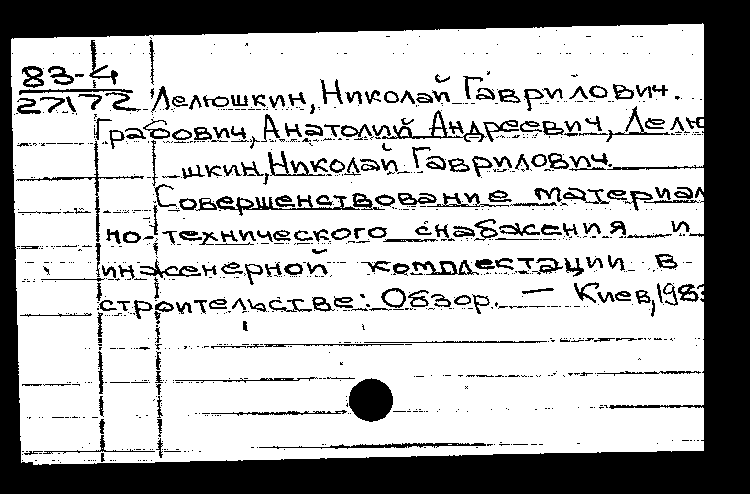 83-4
27172
Лелюшкин, Николай Гаврилович.
Грабович, Анатолий Андреевич, Лелю
шкин, Николай Гаврилович.
Совершенствование материал
но-технического снабжения и
инженерной комплектации в
строительстве: Обзор. — Киев, 1983